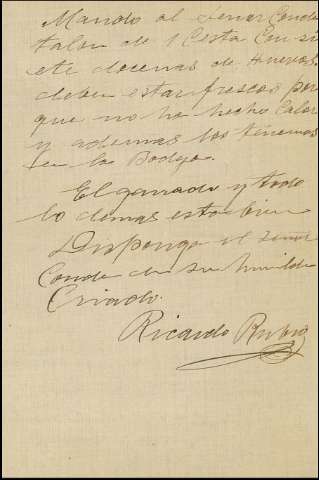 Mando al Señor Conde
talon de 1 Cesta Con si
ete docenas de Huevos
deben estar frescos por
que no ha hecho Calor
y ademas los tenemos
en la Bodega.
El ganado y todo
lo demas esta bien
Disponga el Señor
Conde de su humilde
Criado.
Ricardo Rubio